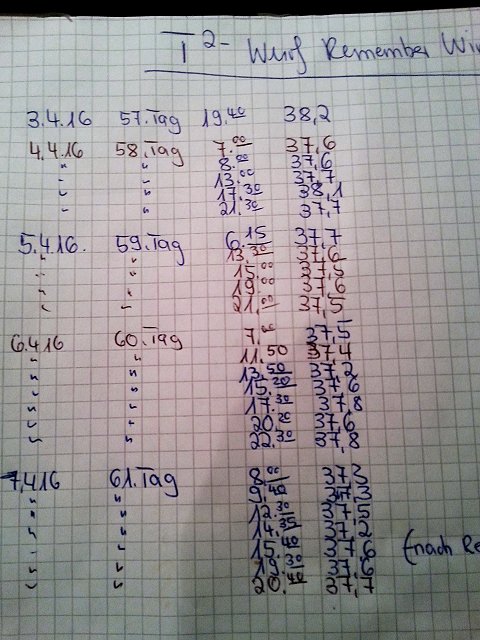 T²- Wurf Remember
3.4.16 57.Tag 19.40 38,2
4.4.16 58.Tag 7.00 37,6
" " 8.00 37,6
" " 13.00 37,7
" " 17.30 38,1
" " 21.30 37,7
5.4.16. 59.Tag 6.15 37,7
" " 13.30 37,6
" " 15.00 37,5
" " 19.00 37,6
" " 21.00 37,5
6.4.16 60.Tag 7.00 37,5
" " 11.50 37,4
" " 13.50 37,2
" " 15.20 37,6
" " 17.30 37,8
" " 20.20 37,6
" " 22.30 37,8
7.4.16 61.Tag 8.00 37,3
" " 9.40 37,3
" " 12.30 37,5
" " 14.35 37,2
" " 15.40 37,6 (nach
" " 19.30 37,6
" " 20.40 37,7